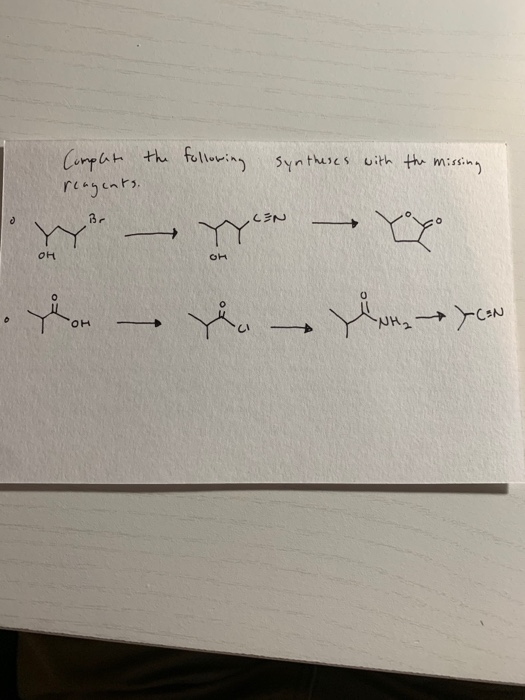 Complete the following syntheses with the missing
reagents.
Br C≡N O O
OH OH
O O O
OH Cl NH2 C≡N